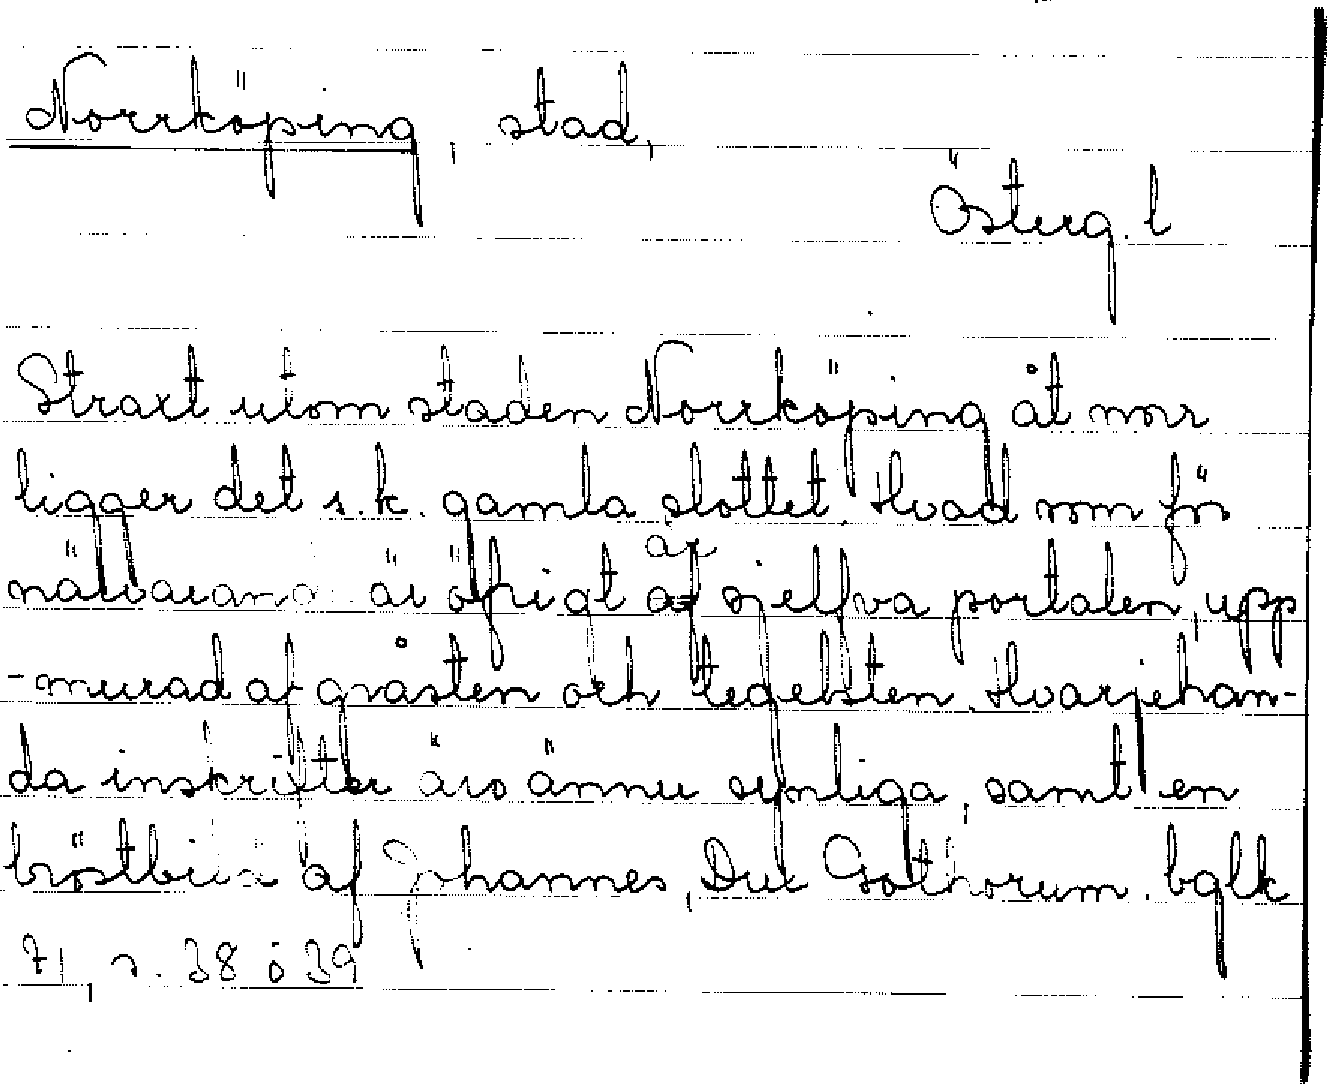 Norrköping, stad,
Österg. l
Straxt utom staden Norrköping åt norr
ligger det s.k. gamla slottet. Hvad som för
närvarande är öfrigt är
af sjelfva portalen, upp
-murad af gråsten och tegelsten. Hvarjehan-
da inskrifter äro ännu synliga, samt en
bröstbild af Johannes, Dux Gothorum. bglk
71, s. 38 o 39